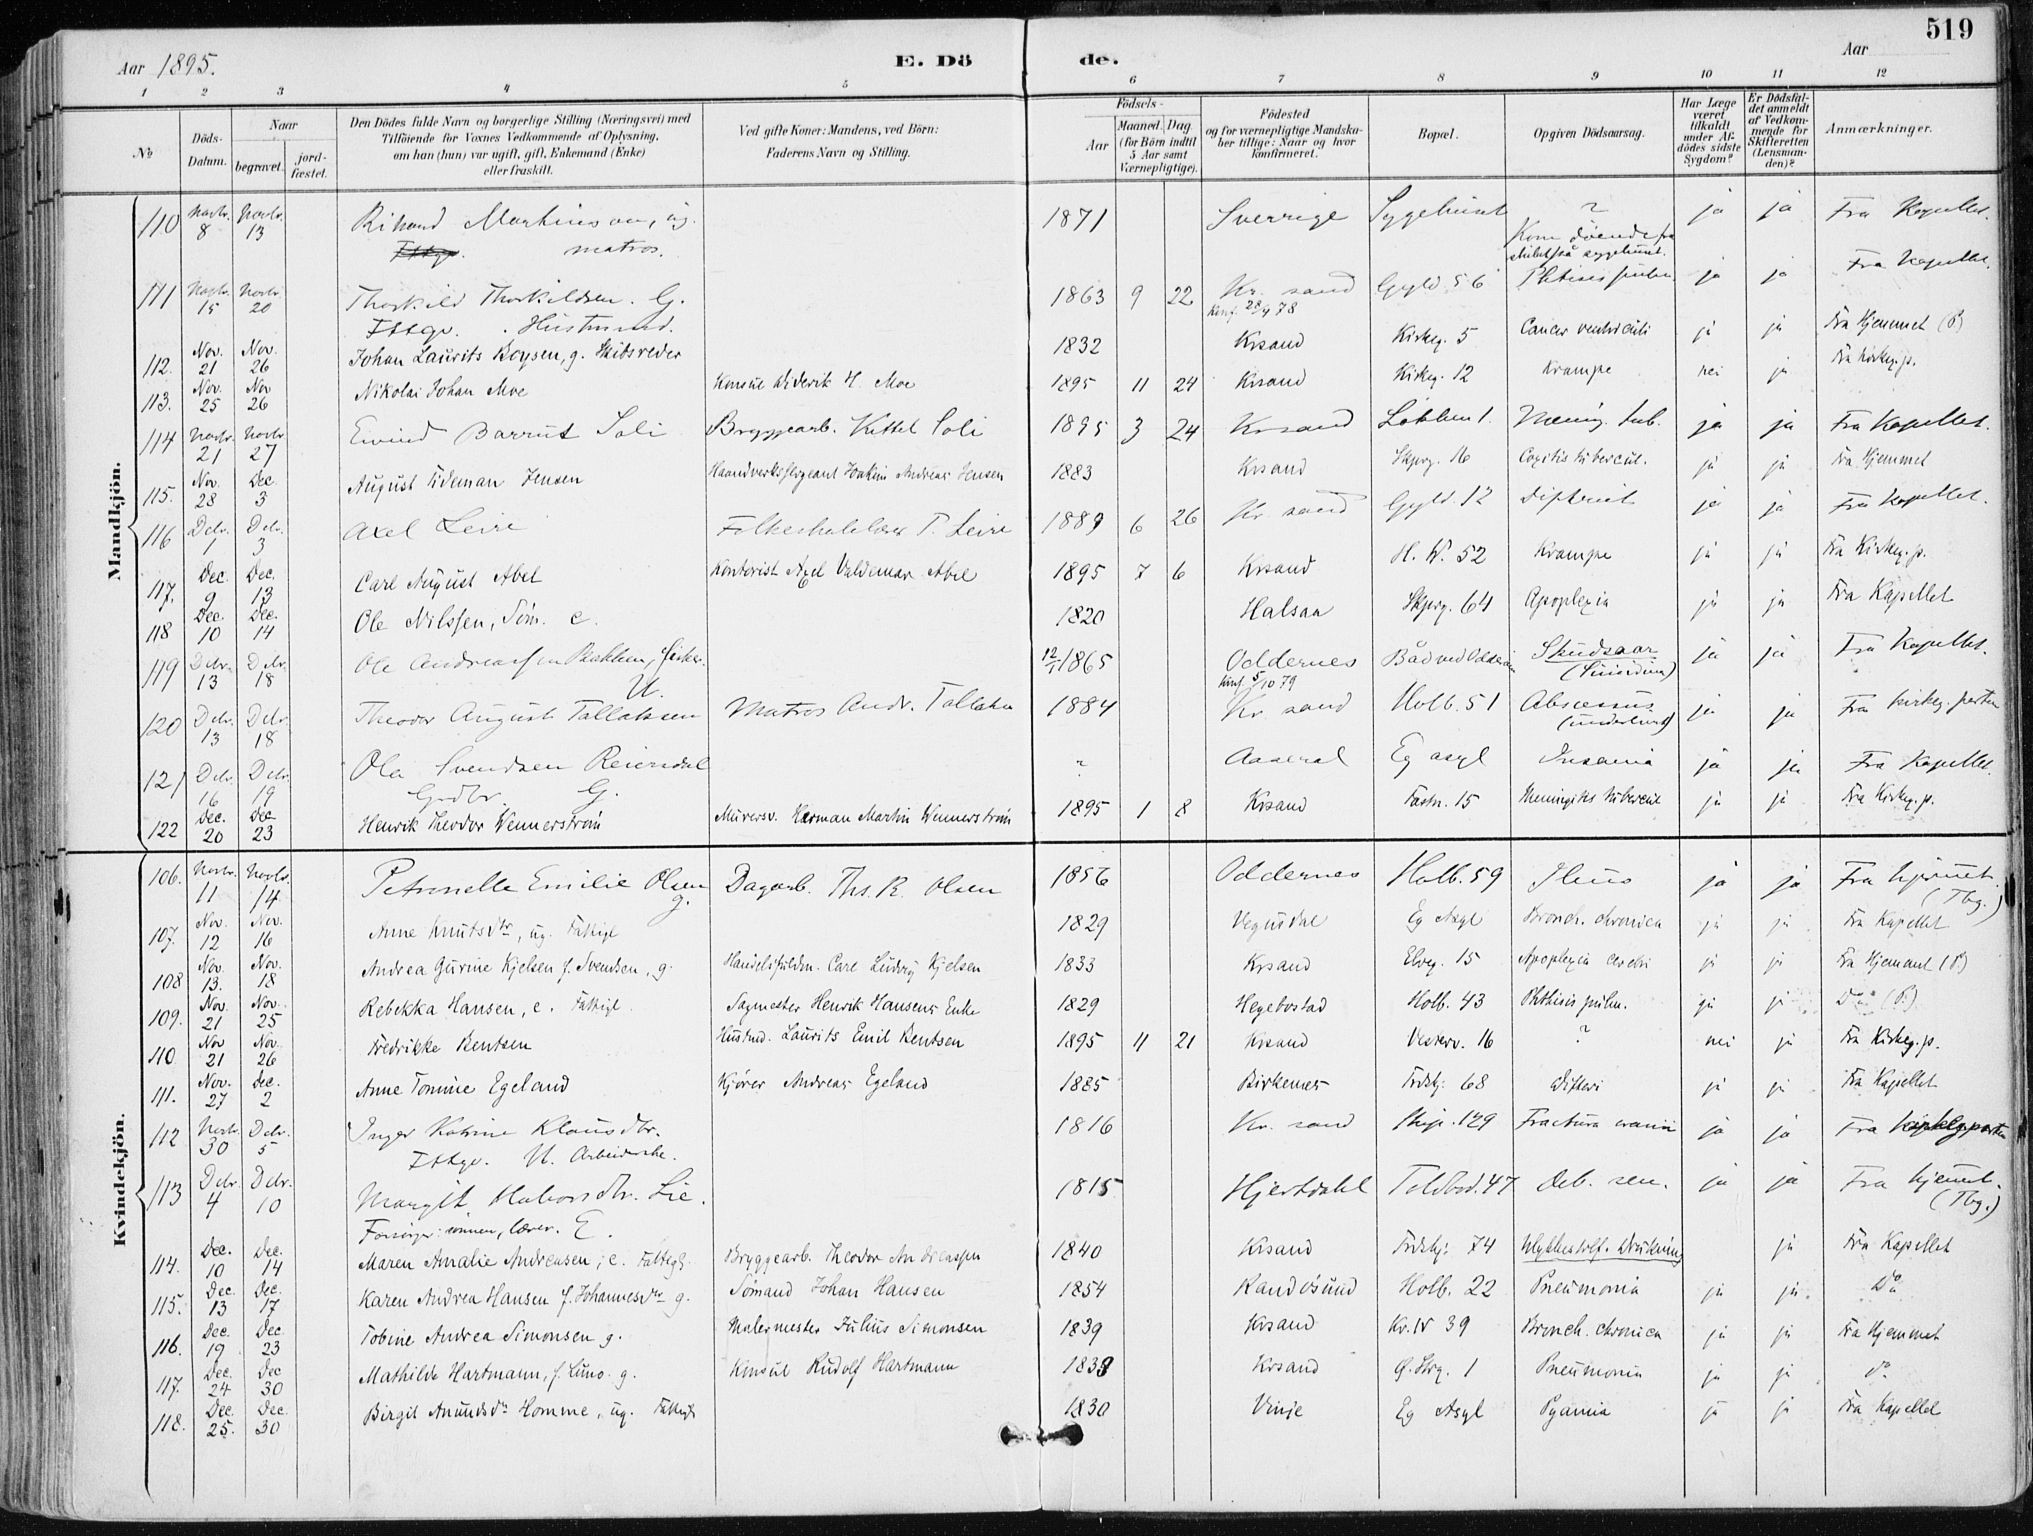 519
Aar 1895.
E. Dö
de.
Aar
1 2 3 4 5 6 7 8 9 10 11 12
No
Döds-Datum.
Naar
begravet.
jord-fæstet.
Den Dödes fulde Navn og borgerlige Stilling (Næringsvei) med
Tilföiende for Voxnes Vedkommende af Oplysning,
om han (hun) var ugift, gift, Enkemand (Enke)
eller fraskilt.
Ved gifte Koner: Mandens, ved Börn:
Faderens Navn og Stilling.
Födsels-
Aar
Maaned. Dag.
(for Börn indtil
5 Aar samt
Værnepligtige).
Födested
og for værnepligtige Mandska-
ber tillige: Naar og hvor
konfirmeret.
Bopæl.
Opgiven Dödsaarsag.
Har Læge
været
tilkaldt
under Af-
dödes sidste
Sygdom?
Er Dödsfal-
det anmeldt
af Vedkom-
mende for
Skifteretten
(Lensman-
den)?
Anmærkninger.
Mandkjön.
110 Novbr. 8 Novbr. 13 Rikard Martinsson, ug. 1871 Sverrige Sygehuset ? ja ja Fra Kapellet.
matros. Kom döende fra
111 Novbr. 15 Novbr. 20 Thorkild Thorkildsen. G. 1863 9 22 Kr. sand Gyld. 56 Phtisis pulm. ja ja Fra Kapellet.
Fttgv. Husmand. Konf. 28/9 78
112. Nov. 21 Nov. 26 Johan Laurits Boysen, g. Skibsreder 1832 Krsand Kirkeg. 5 Cancer ventriculi ja ja Fra Hjemmet (P)
113. Nov. 25 Nov 26 Nikolai Johan Moe Konsul Diderik H. Moe 1895 11 24 Krsand Kirkeg. 12 Krampe nei ja Fra Kirkeg. p.
114 Novbr. 21 Novbr 27 Eivind Barrut Soli Bryggearb. Kittel Soli 1895 3 24 Krsand Lökken 1. Mening. tub. ja ja Fra Kapellet.
115. Nov. 28 Dec. 3 August Tideman Jensen Haandverkssergeant Joakim Andreas Jensen 1883 Krsand Skprg. 16 Coxitis tubercul. ja ja Fra Hjemmet
116 Debr. 1 Debr. 3 Axel Leire Folkeskolelærer T. Leire 1889 6 26 Kr. sand Gyld. 12 Difterit ja ja Fra Kapellet.
117. Dec. 9 Dec. 13 Carl August Abel Kontorist Axel Valdemar Abel 1895 7 6 Krsand H. W. 52 Krampe ja ja Fra Kirkeg. p.
118 Dec. 10 Dec. 14 Ole Nilssen, Söm. e. 1820 Halsaa Skprg. 64 Apoplexia ja ja Fra Kapellet
119 Debr. 13 Debr. 18 Ole Andreassen Bakken, fisker. 12/1 1865 Oddernes Båd ved Odderöen Skudsaar ja ja Fra Kapellet.
U. Konf. 5/10 79 (Suicidium)
120 Debr. 13 Debr. 18 Theodor August Tallaksen Matros Andr. Tallaksen 1884 Kr. sand Holb. 51 Abscessus ja ja Fra kirkeg. porten
121 Debr. 16 Debr. 19 Ola Svendsen Reiersdal ? Aaseral Eg asyl Insania ja ja Fra Kapellet.
Grdbr. G.
122 Dec. 20 Dec 23 Henrik Theodor Wennerström Murersv. Herman Martin Wennerström 1895 1 8 Krsand Fastn. 15 Meningitis tubercul ja ja Fra Kirkeg. p.
Kvindekjön.
106. Novbr. 11 Novbr. 14 Petronelle Emilie Olsen g. Dagarb. Ths. R. Olsen 1856 Oddernes Holb. 59 Ileus ja ja Fra hjemmet. (Tbg.)
107. Nov. 12 Nov. 16 Anne Knutsdtr, ug. Fattigl 1829 Vegusdal Eg Asyl Bronch. chronica ja ja Fra Kapellet
108 Nov. 13. Nov. 18 Andrea Gurine Kjelsen f. Svendsen, g. Handelsfuldm. Carl Ludvig Kjelsen 1833 Krsand Elveg. 15 Apoplexia cerebri ja ja Fra Hjemmet (P)
109. Nov. 21 Nov. 25 Rebekka Hansen, e. Fattigl. Sagmester Henrik Hansens Enke 1829 Hegebostad Holb. 43 Phthisis pulm. ja ja Do (P)
110 Nov 21 Nov. 26 Fredrikke Bentsen Hustmd. Laurits Emil Bentsen 1895 11 21 Krsand Vesterv. 16 ? nei ja Fra Kirkeg. p.
111. Nov. 27 Dec. 2 Anne Tomine Egeland Kjører Andreas Egeland 1885 Birkenes Frdskj. 68 Difteri ja ja Fra Kapellet
112 Novbr. 30 Debr. 5 Inger Katrine Klausdtr. 1816 Kr. sand Skipr. 129 Fractura cranii ja ja Fra kirkegporten
Fttgv. U. Arbeiderske.
113 Debr. 4 Debr. 10 Margit Halvorsdtr. Lie. 1815 Hjertdahl Toldbod. 47 Deb. sen. ja ja Fra hjemmet. (Tbg.)
Forsörger: sönnen, lærer. E.
114. Dec. 10 Dec. 14 Maren Amalie Andreasen, e. Fattigl. Bryggearb. Theodor Andreassen 1840 Krsand Frdskj. 74 Ulykkestilf. Drukning ja Fra Kapellet
115. Dec. 13 Dec. 17 Karen Andrea Hansen f. Johannesdtr g. Sömand Johan Hansen 1854 Randösund Holb. 22 Pneumonia ja ja. Do
116. Dec. 19 Dec. 23 Tobine Andrea Simonsen g. Malermester Julius Simonsen 1839 Krsand Kr. IV 39 Bronch. chronica ja ja Fra Hjemmet
117. Dec. 24 Dec 30 Mathilde Hartmann, f. Luno. g. Konsul Rudolf Hartmann 1838 Krsand Ø. Strg. 1 Pneumonia ja ja Do
118. Dec. 25. Dec. 30 Birgit Anundsdtr Homme, ug. Fattigl 1830 Vinje Eg Asyl Pyæmia ja ja Fra Kapellet